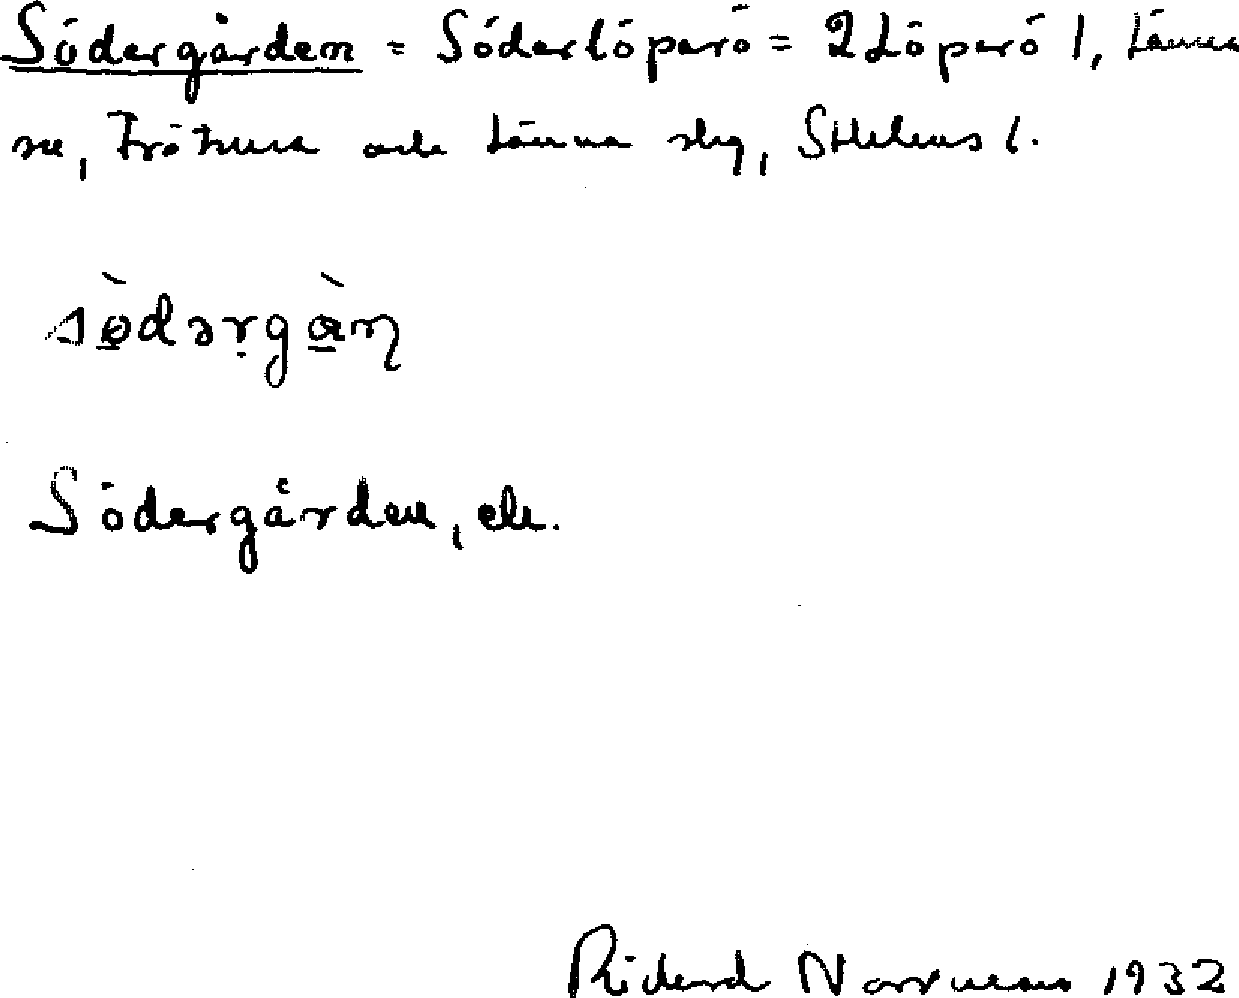 Södergården = Söderlöparö = 2 Löparö 1, Länna
sn, Frötuna och Länna slg, Sthlms l.
södərgån
Södergården, elr.
Rickard Norrman 1932